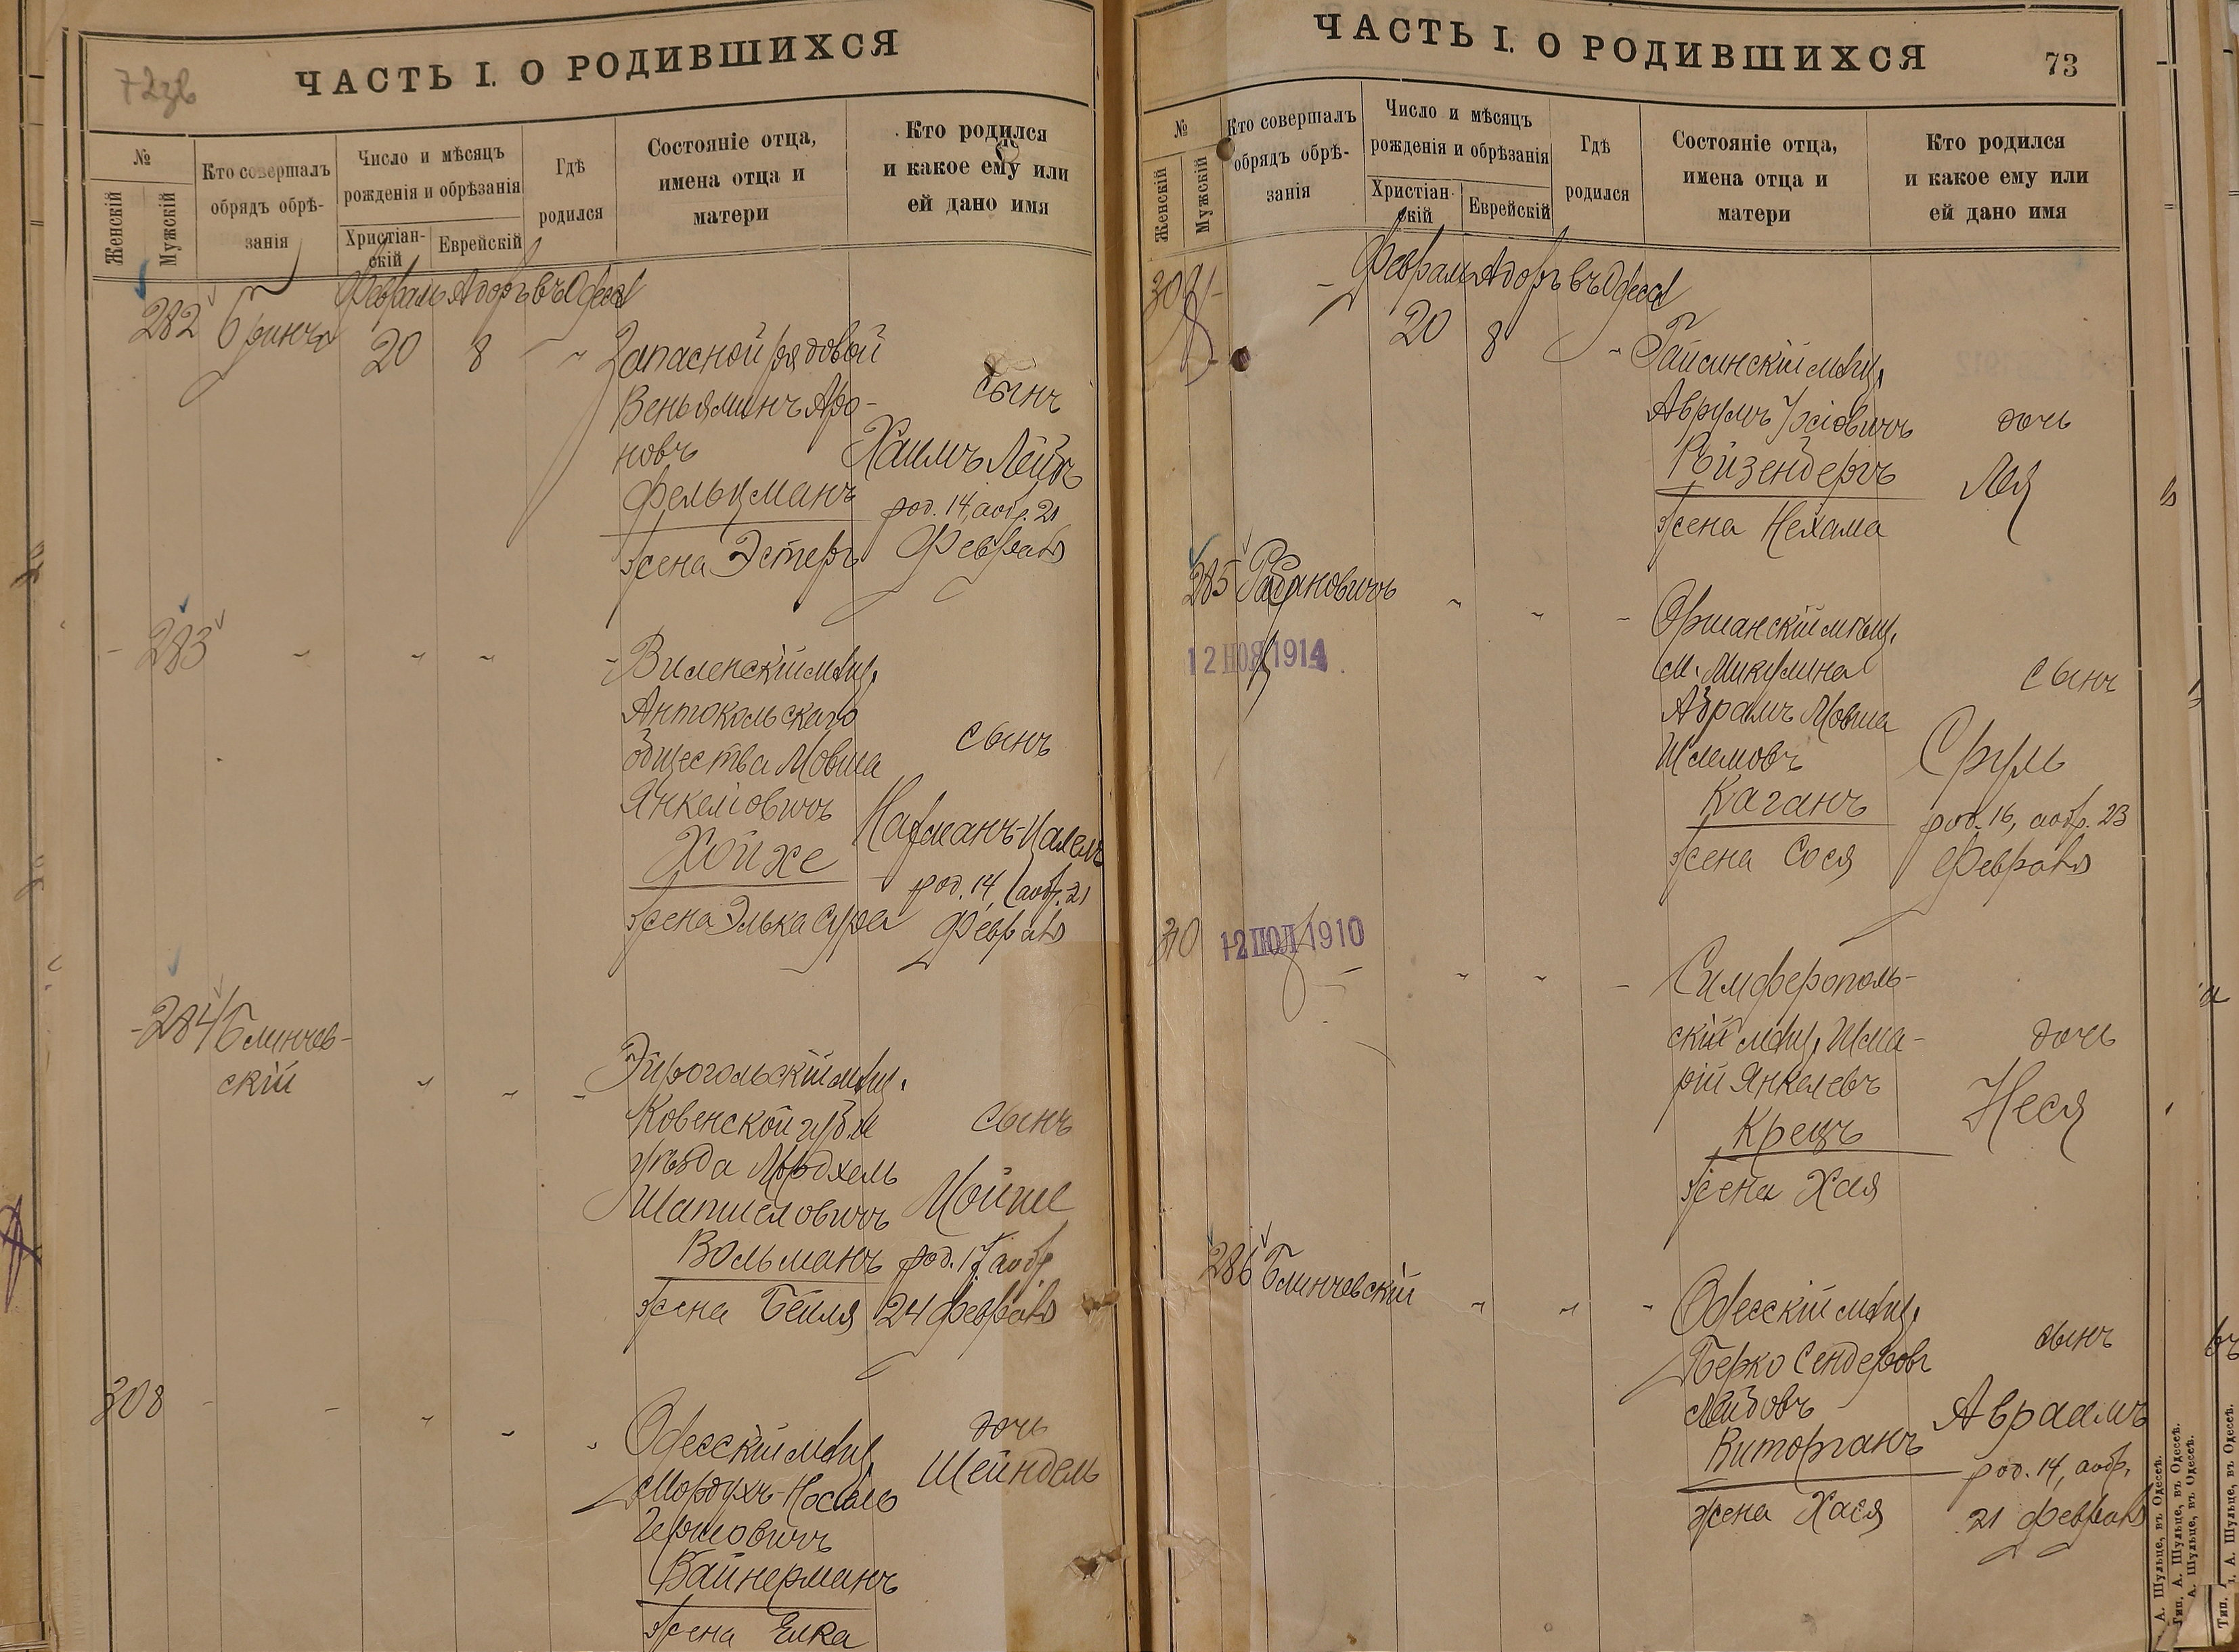 72зв
ЧАСТЬ I. О РОДИВШИХСЯ
№
Женскій
Мужскій
Кто совершалъ
обрядъ обрѣ-
занія
Число и мѣсяцъ
рожденія и обрѣзанія
Христіан-
скій
Еврейскій
Гдѣ
родился
Состояніе отца,
имена отца и
матери
Кто родился
и какое ему или
ей дано имя
Февраль Адоръ въ Одессѣ
282
20 8
Запасной рядовой
Веньяминъ Аро-
новъ
Фельцманъ
жена Эстеръ
сынъ
Хаимъ Лейбъ
род. 14, а обр. 21
Февраля
283
Виленскій мѣщ.
Антокольскаго
общества Мовша
Янкелiовичъ
Хойхе
жена Элька Сура
сынъ
Нахманъ-Цалелъ
род. 14, а обр. 21
Февраля
284 Блинчев-
скій
Эйрогольскій мѣщ.
Ковенской губ. и
уѣзда Мордхель
Шапшеловичъ
Вольманъ
жена Бейля
сынъ
Мойше
род. 17 а обр.
24 февраля
308
Одесскій мѣщ.
Мордухъ-Носель
Гершовичъ
Вайнерманъ
жена Елка
дочь
Шейндель
ЧАСТЬ I. О РОДИВШИХСЯ
73
№
Женскій
Мужскій
Кто совершалъ
обрядъ обрѣ-
занія
Число и мѣсяцъ
рожденія и обрѣзанія
Христіан-
скій
Еврейскій
Гдѣ
родился
Состояніе отца,
имена отца и
матери
Кто родился
и какое ему или
ей дано имя
309
Февраль Адоръ въ Одессѣ
20 8
Гайсинскій мѣщ.
Аврумъ Усіовичъ
Ройзенбергъ
жена Нехама
дочь
Лея
285
12 НОЯ 1914
Оршанскій мѣщ.
м. Микулина
Абрамъ Мовша
Шлемовъ
Каганъ
жена Сося
сынъ
Сруль
род. 16, а обр. 23
Февраля
310
12 ІЮЛ 1910
Симферополь-
скій мѣщ. Шма-
рій Янкелевъ
Крецъ
жена Хая
дочь
Неся
286 Блинчевскій
Одесскій мѣщ.
Берко Сендеровъ
Лейбовъ
Виторганъ
жена Хася
сынъ
Авраамъ
род. 14, а обр.
21 февраля
А. Шульце, въ Одессѣ.
Тип. А. Шульце, въ Одессѣ.
А. Шульце, въ Одессѣ.
Тип. А. Шульце, въ Одессѣ.